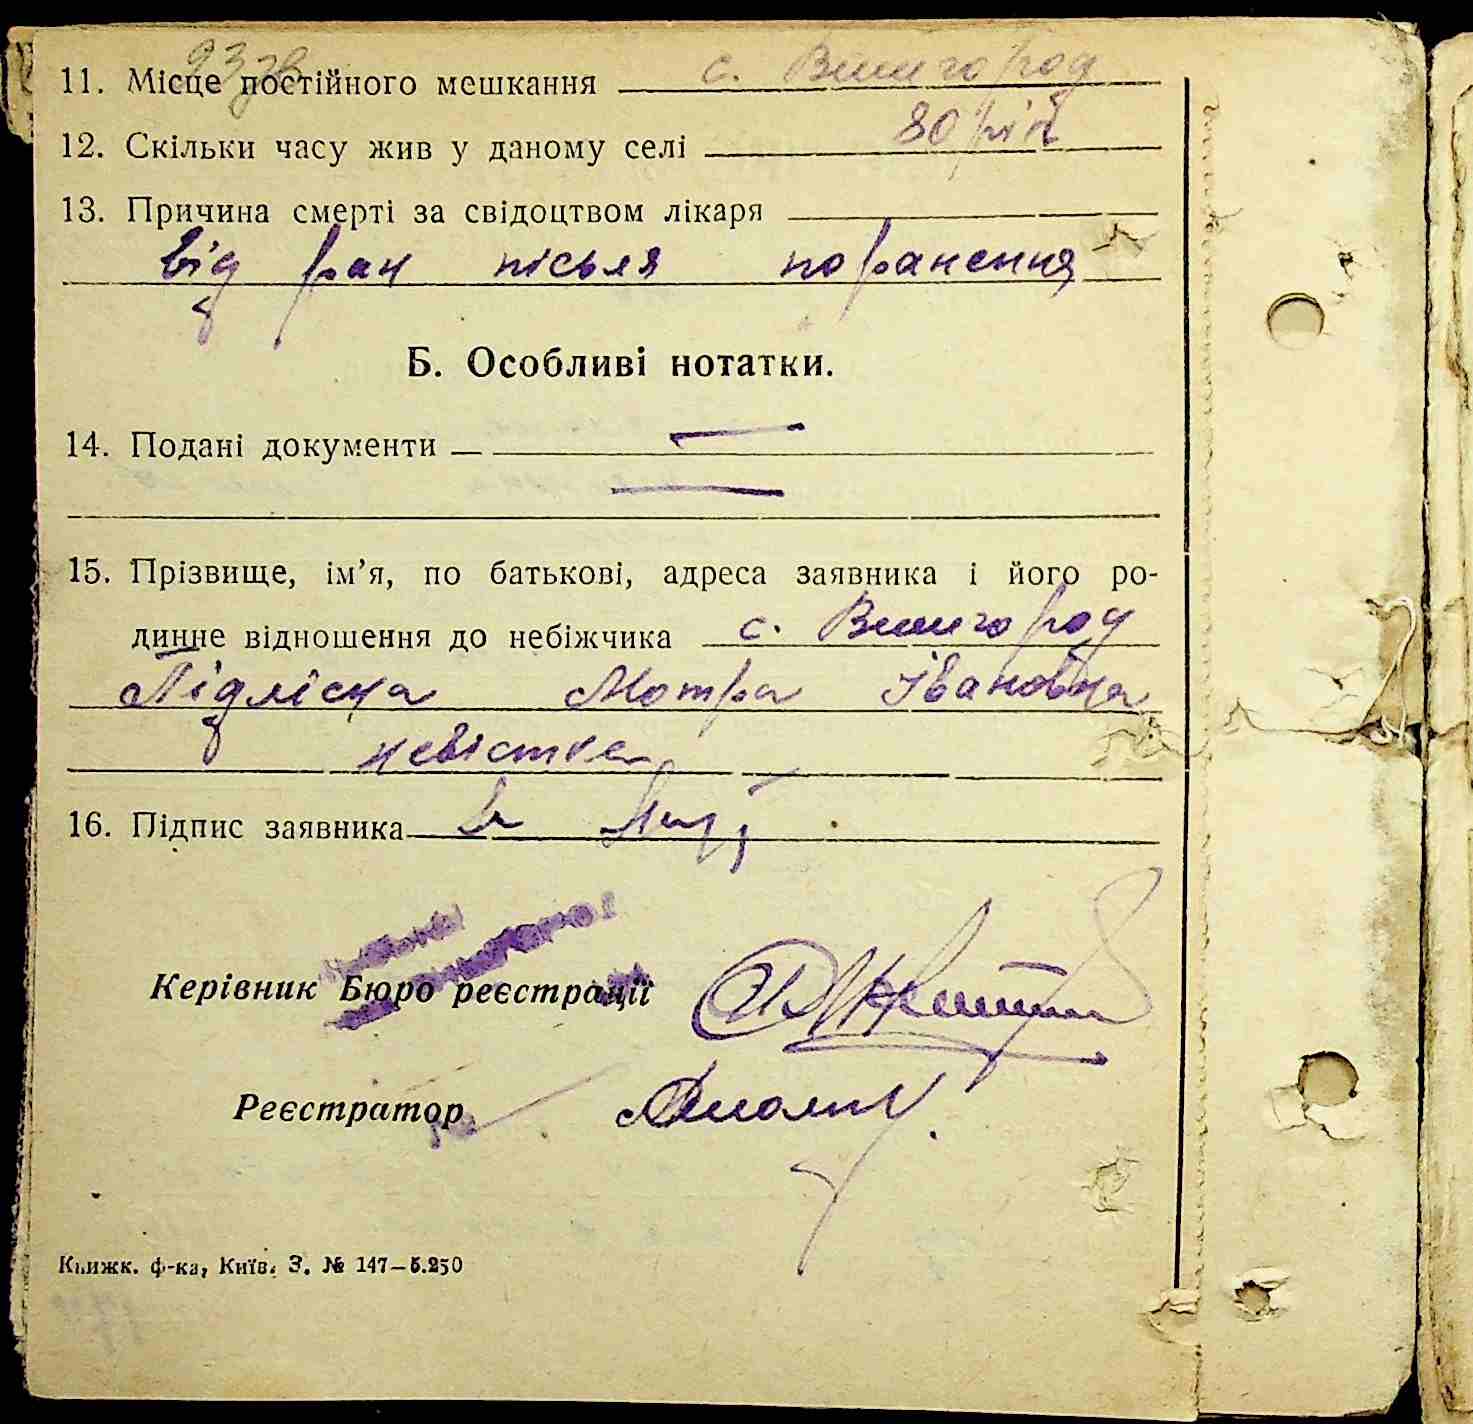 93 зв
11. Місце постійного мешкання с. Вишгород
12. Скільки часу жив у даному селі 80 рік
13. Причина смерті за свідоцтвом лікаря
від ран після поранення
Б. Особливі нотатки.
14. Подані документи — —
15. Прізвище, ім’я, по батькові, адреса заявника і його ро-
динне відношення до небіжчика с. Вишгород
Підліска Мотра Івановна
невістка
16. Підпис заявника
Керівник Бюро реєстрації
Реєстратор
Книжк. ф-ка, Київ. З. № 147—5.250